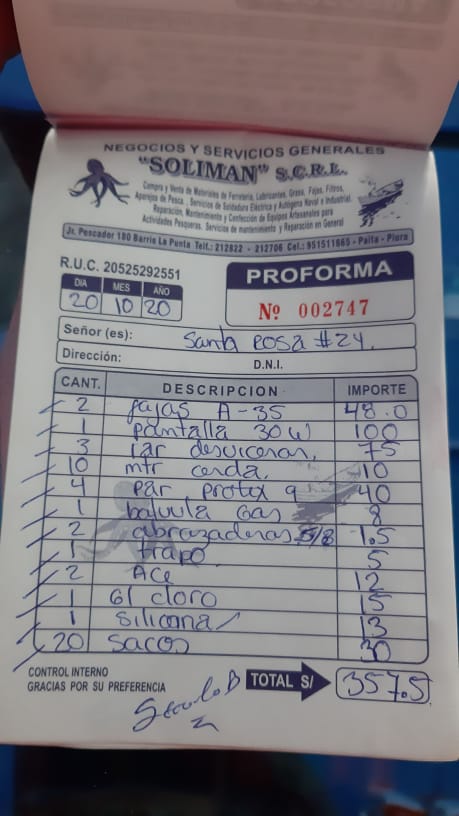 NEGOCIOS Y SERVICIOS GENERALES
"SOLIMAN" S.C.R.L.
Compra y Venta de Materiales de Ferretería, Lubricantes, Grasa, Fajas, Filtros,
Aparejos de Pesca, Servicios de Soldadura Eléctrica y Autógena Naval e Industrial.
Reparación, Mantenimiento y Confección de Equipos Artesanales para
Actividades Pesqueras. Servicios de mantenimiento y Reparación en General
Jr. Pescador 180 Barrio La Punta Telf.: 212822 - 212706 Cel.: 951511865 - Paita - Piura
R.U.C. 20525292551
PROFORMA
DIA MES AÑO
20 10 20
Nº 002747
Señor (es): Santa Rosa #24.
Dirección: D.N.I.
CANT. DESCRIPCION IMPORTE
2 fajas A-35 48.0
1 pantalla 30W 100
3 par 75
10 mtr cerda. 10
4 par protex 9 40
1 balvula Gas 8
2 abrazaderas 5/8 1.5
1 trapo 5
2 Ace 12
1 Gl cloro 15
1 silicona 13
20 sacos 30
CONTROL INTERNO
GRACIAS POR SU PREFERENCIA
TOTAL S/ 357.5